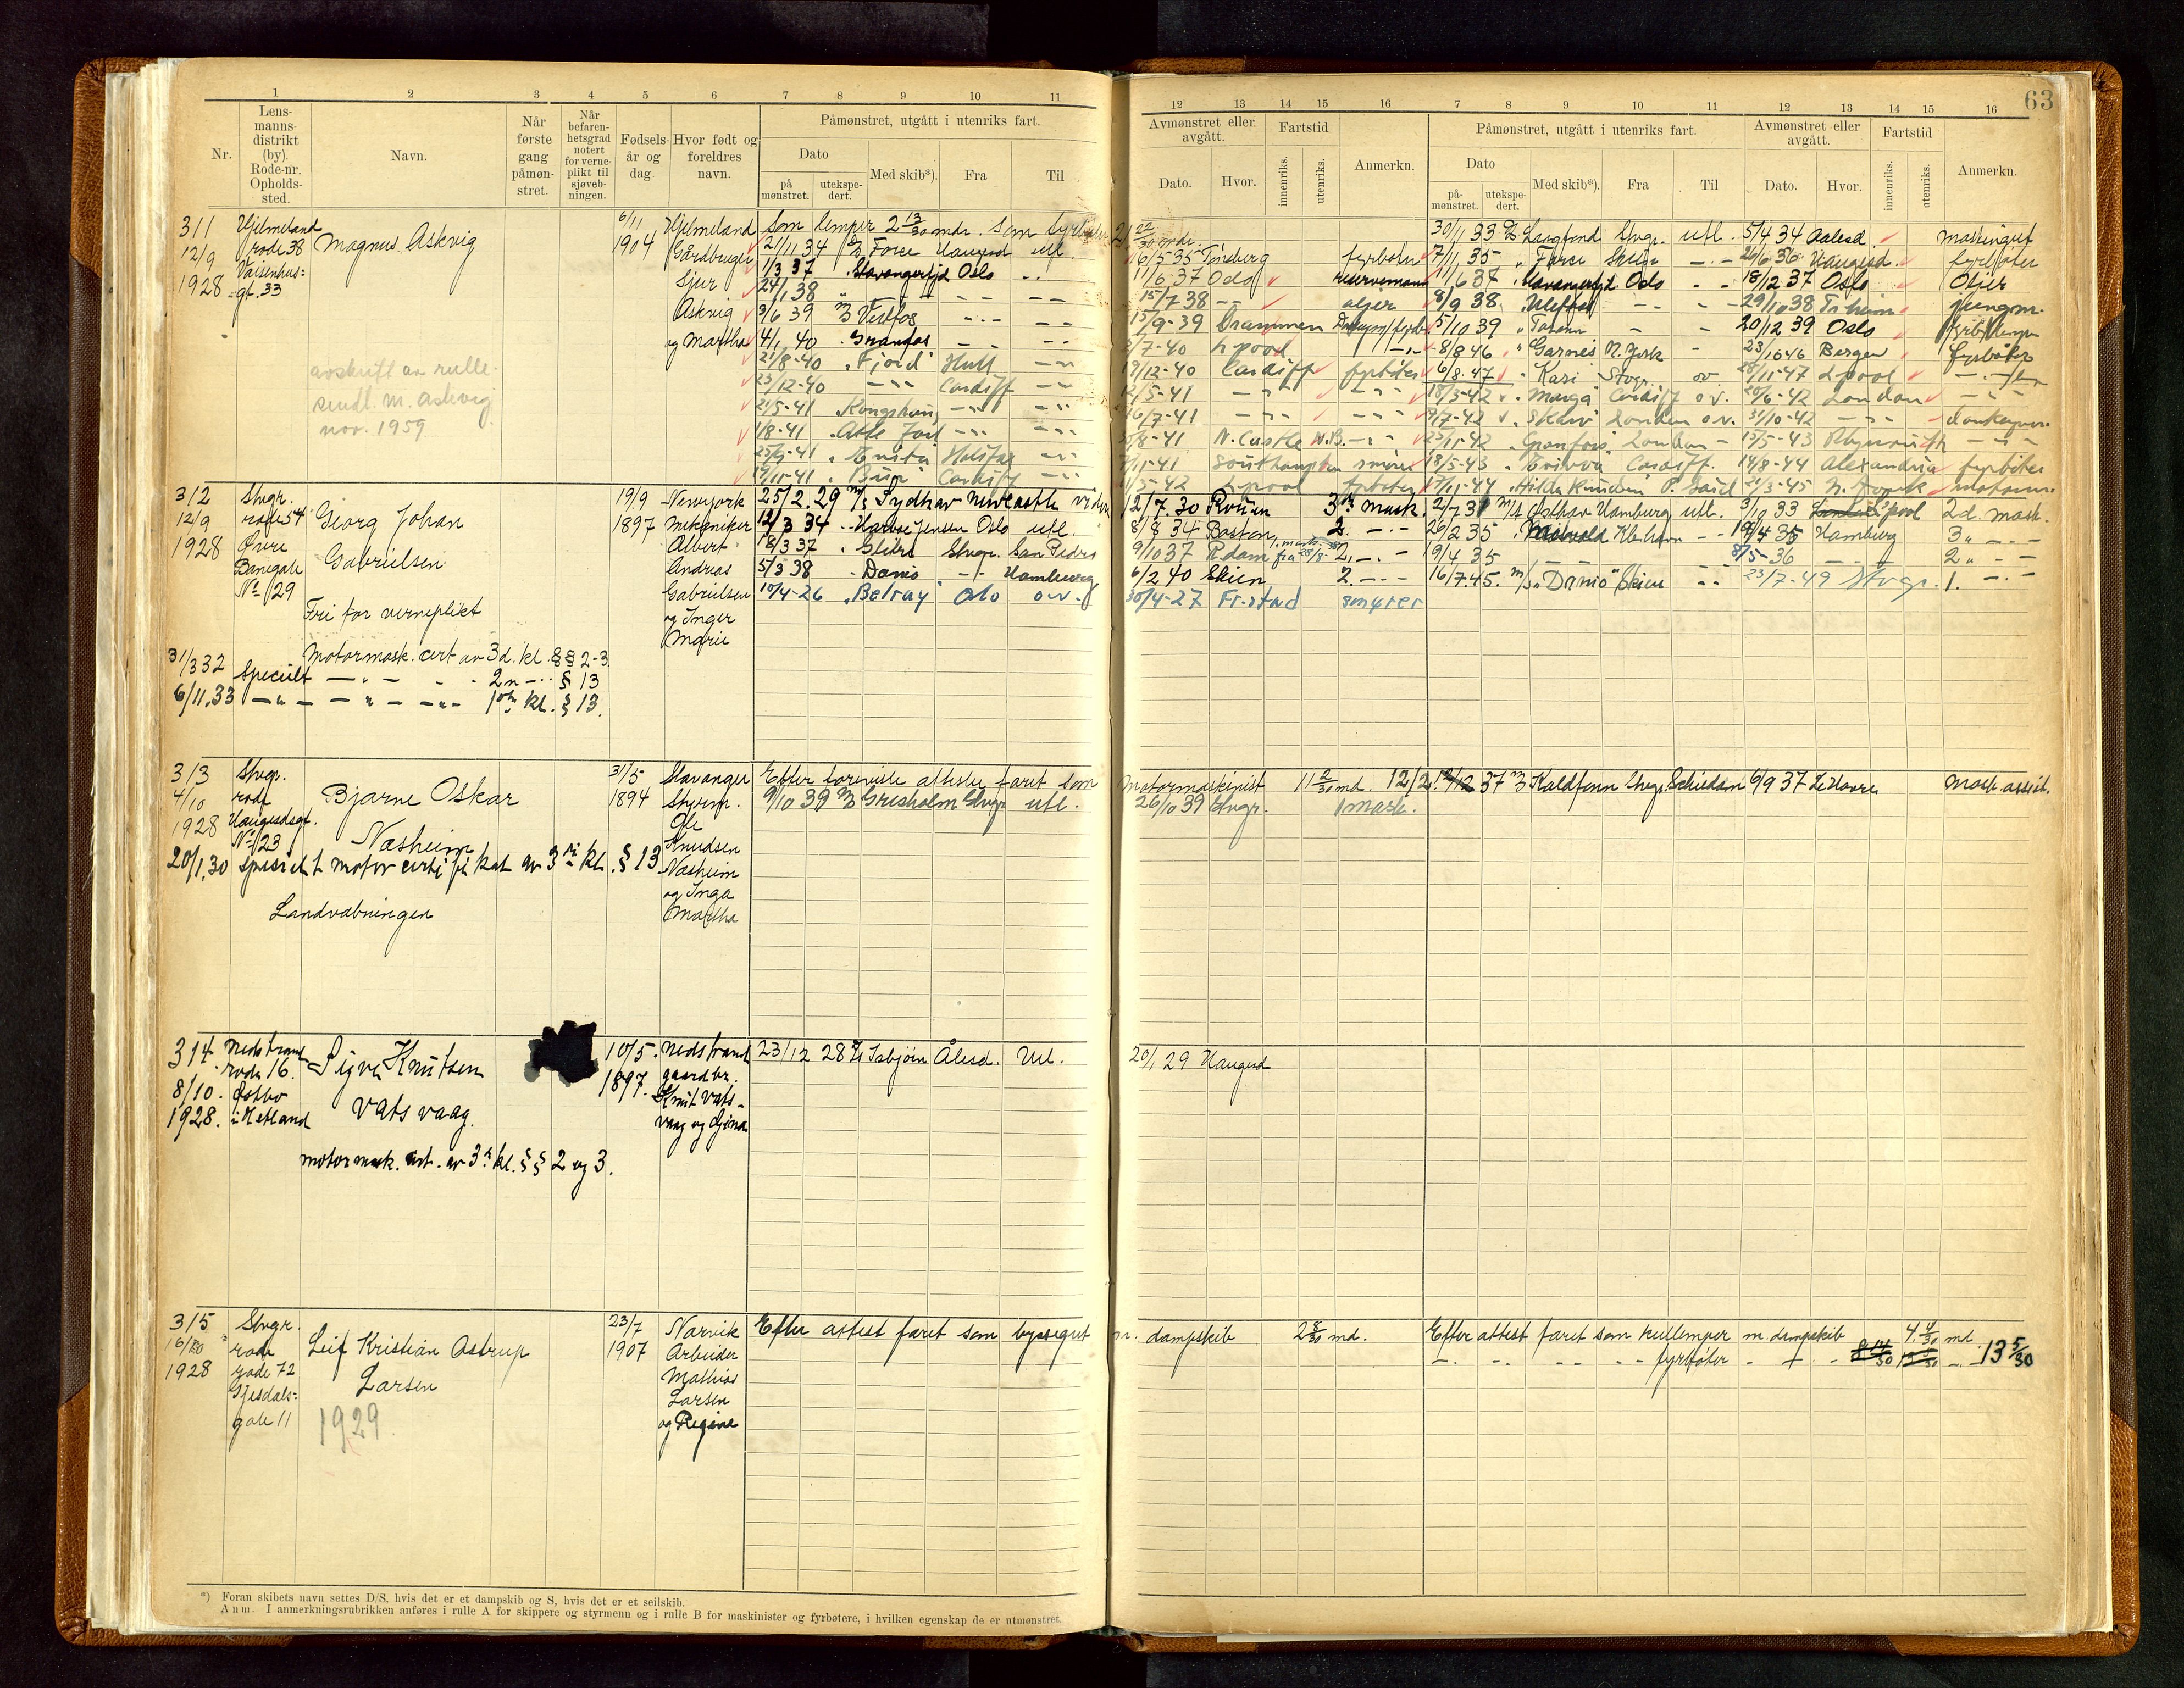 63
1 2 3 4 5 6 7 8 9 10 11
12 13 14 15 16 7 8 9 10 11 12 13 14 15 16
Nr.
Lens-
manns-
distrikt
(by).
Rode-nr.
Opholds-
sted.
Navn.
Når
første
gang
påmøn-
stret.
Når
befaren-
hetsgrad
notert
for verne-
plikt til
sjøveb-
ningen.
Fødsels-
år og
dag.
Hvor født og
foreldres
navn.
Påmønstret, utgått i utenriks fart.
Dato
på
mønstret.
utekspe-
dert.
Med skib*).
Fra
Til
Avmønstret eller
avgått.
Dato.
Hvor.
Fartstid
innenriks.
utenriks.
Anmerkn.
Påmønstret, utgått i utenriks fart.
Dato
på-
mønstret.
utekspe-
dert.
Med skib*).
Fra
Til
Avmønstret eller
avgått.
Dato.
Hvor.
Fartstid
innenriks.
utenriks.
Anmerkn.
311
12/9
1928
Hjelmeland
rode 38
Vaisenhus=
gt. 33
Magnus Askvig
avskrift av rulle
sendt M. Askvig
nov. 1959
6/11
1904
Hjelmeland
Gårdbruger
Sjur
Askvig
og Martha
Som lemper 2 13/30 mdr. som fyrbøter
21/11 34 D/S Force Haugesd utl.
1/3 37 " Stavangerfjd Oslo - "
24/1 38 " - - - -
3/6 39 M/S Vestfos - " - - -
4/1 40 " Granfos - - - -
21/8-40 "Fjord" Hull - " -
23/12-40 - " - Cardiff - " -
21/5-41 "Kongshaug - " - - " -
1/8-41 "Atle Jarl - " - - " -
25/9-41 Halifax - " -
19/11-41 Cardiff - " -
22/30 mdr.
16/5-35 Tønsberg fyrbøter
11/6 37 Oslo reservemann
15/7 38 - - oljer
15/9-39 Drammen
/7-40 L.pool - " -
17/12-40 Cardiff fyrbøter
12/5-41 - " - - " -
16/7-41 - " - - " -
/8-41 N.Castle N.B. - " -
/11-41 Southampton smører
/5-42 L.pool fyrbøter
30/1 33 D/S Langfond Stvgr. utl. 5/4 34 Aalesd. maskingut
7/11 35 " Force Skien - " - 26/6 36 Haugesd. fyrbøter
11/6 37 " Stavangerfjd. Oslo - " 18/12 37 Oslo Oljer
8/9 38 " Ulefos - - - 29/10 38 Tr.heim jungm.
5/10 39 " Toran - - 20/12 39 Oslo
8/8 46 " Garnes N.York 23/10 46 Bergen fyrbøter
6/8-47 " Kari Stvgr. ov. 28/11-47 L.pool
18/3-42 " Marga Cardiff o.v. 20/6-42 London - " -
9/7-42 " Skarv London o.v. 31/10-42 - " - donkeym.
23/11-42 "Granfoss" London - 13/5-43 Plymouth - " -
18/5-43 Cardiff. 14/8-44 Alexandria fyrbøter
17/11-44 "Hilda Knudsen" P. Said 21/3-45 N. York motorm.
312
12/9
1928
Stvgr.
rode 54
Øvre
Banegate
No 29
Georg Johan
Gabrielsen
Fri for verneplikt
19/9
1897
Newyork
Mekaniker
Albert
Andreas
Gabrielsen
og Inger
Marie
25/2.29 M/S Sydhav Newcastle viden
12/3 34 " Harboe Jensen Oslo utl.
18/3 37 " Glitre Stvgr. San Pedro
5/3 38 " Danio - - Hamburg
10/4-26 "Belray" Oslo o.v.f
12/7.30 Rouen 3dje mask.
8/8 34 Boston 2. - " -
9/10 37 R.dam 2. - " -
6/2 40 Skien 2. - " -
30/4-27 Fr.stad smører
2/7 31 M/S Østhav Hamburg utl. 3/10 33 L.pool 2d. mask.
26/2 35 " Kbhavn - - 19/4 35 Hamburg 3 " - " -
19/4 35 - - 8/5-36 - - 2 " - -
16/7-45. M/S "Danio" Skien - " 23/7-49 Stvgr. 1. - " -
31/3 32 Motormask. cert av 3d. kl. §§ 2-3
Specielt - " - " - 2n - " § 13
6/11.33 - " - - " - - " - 1ste kl. § 13.
313
4/10
1928
Stvgr.
rode
Haugesdsgt.
No 23
Bjarne Oskar
Næsheim
20/1.30 spesielt motorcertifikat av 3dje kl. § 13
Landvæbningen
31/5
1894
Stavanger
Styrm.
Ole
Knudsen
Næsheim
og Inga
Martha
Efter foreviste attester faret som motormaskinist 11 2/30 md.
9/10 39 M/S Grisholm Stvgr utl. 26/10 39 Stvgr. 1 mask.
37 M/S Kaldfonn Stvgr. Schiedam 6/9 37 Le Havre Mask. assist.
314
8/10.
1928.
Nedstrand
rode 16.
Østbø
i Hetland
Sigve Knutsen
Vatsvaag.
motormask. cert. av 3. kl. §§ 2 og 3.
10/5.
1897.
Nedstrand
gaardbr.
Knut Vats-
vaag og Gjina
23/12 28 D/S Isbjørn Ålesd. Utl.
20/1 29 Haugesd
315
1928
Stvgr.
rode
rode 72
Gjesdals=
gate 11
Leif Kristian Astrup
Larsen
1929
23/7
1907
Narvik
Arbeider
Mathias
Larsen
og Regine
Efter attest faret som byssegut m. dampskib 2 8/30 md.
Efter attest faret som kullemper m. dampskib 4. 4/30 md
- " - " - " - - fyrbøter - " - " - 13 5/30
*) Foran skibets navn settes D/S, hvis det er et dampskib og S, hvis det er et seilskib.
Anm. I anmerkningsrubrikken anføres i rulle A for skippere og styrmenn og i rulle B for maskinister og fyrbøtere, i hvilken egenskap de er utmønstret.